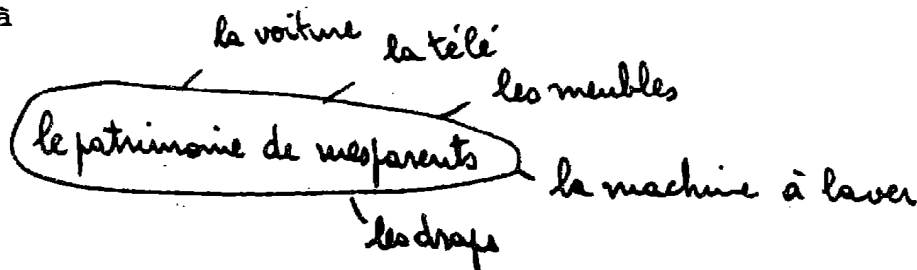 à
la voiture
la télé
les meubles
le patrimoine de mes parents
la machine à laver
les draps